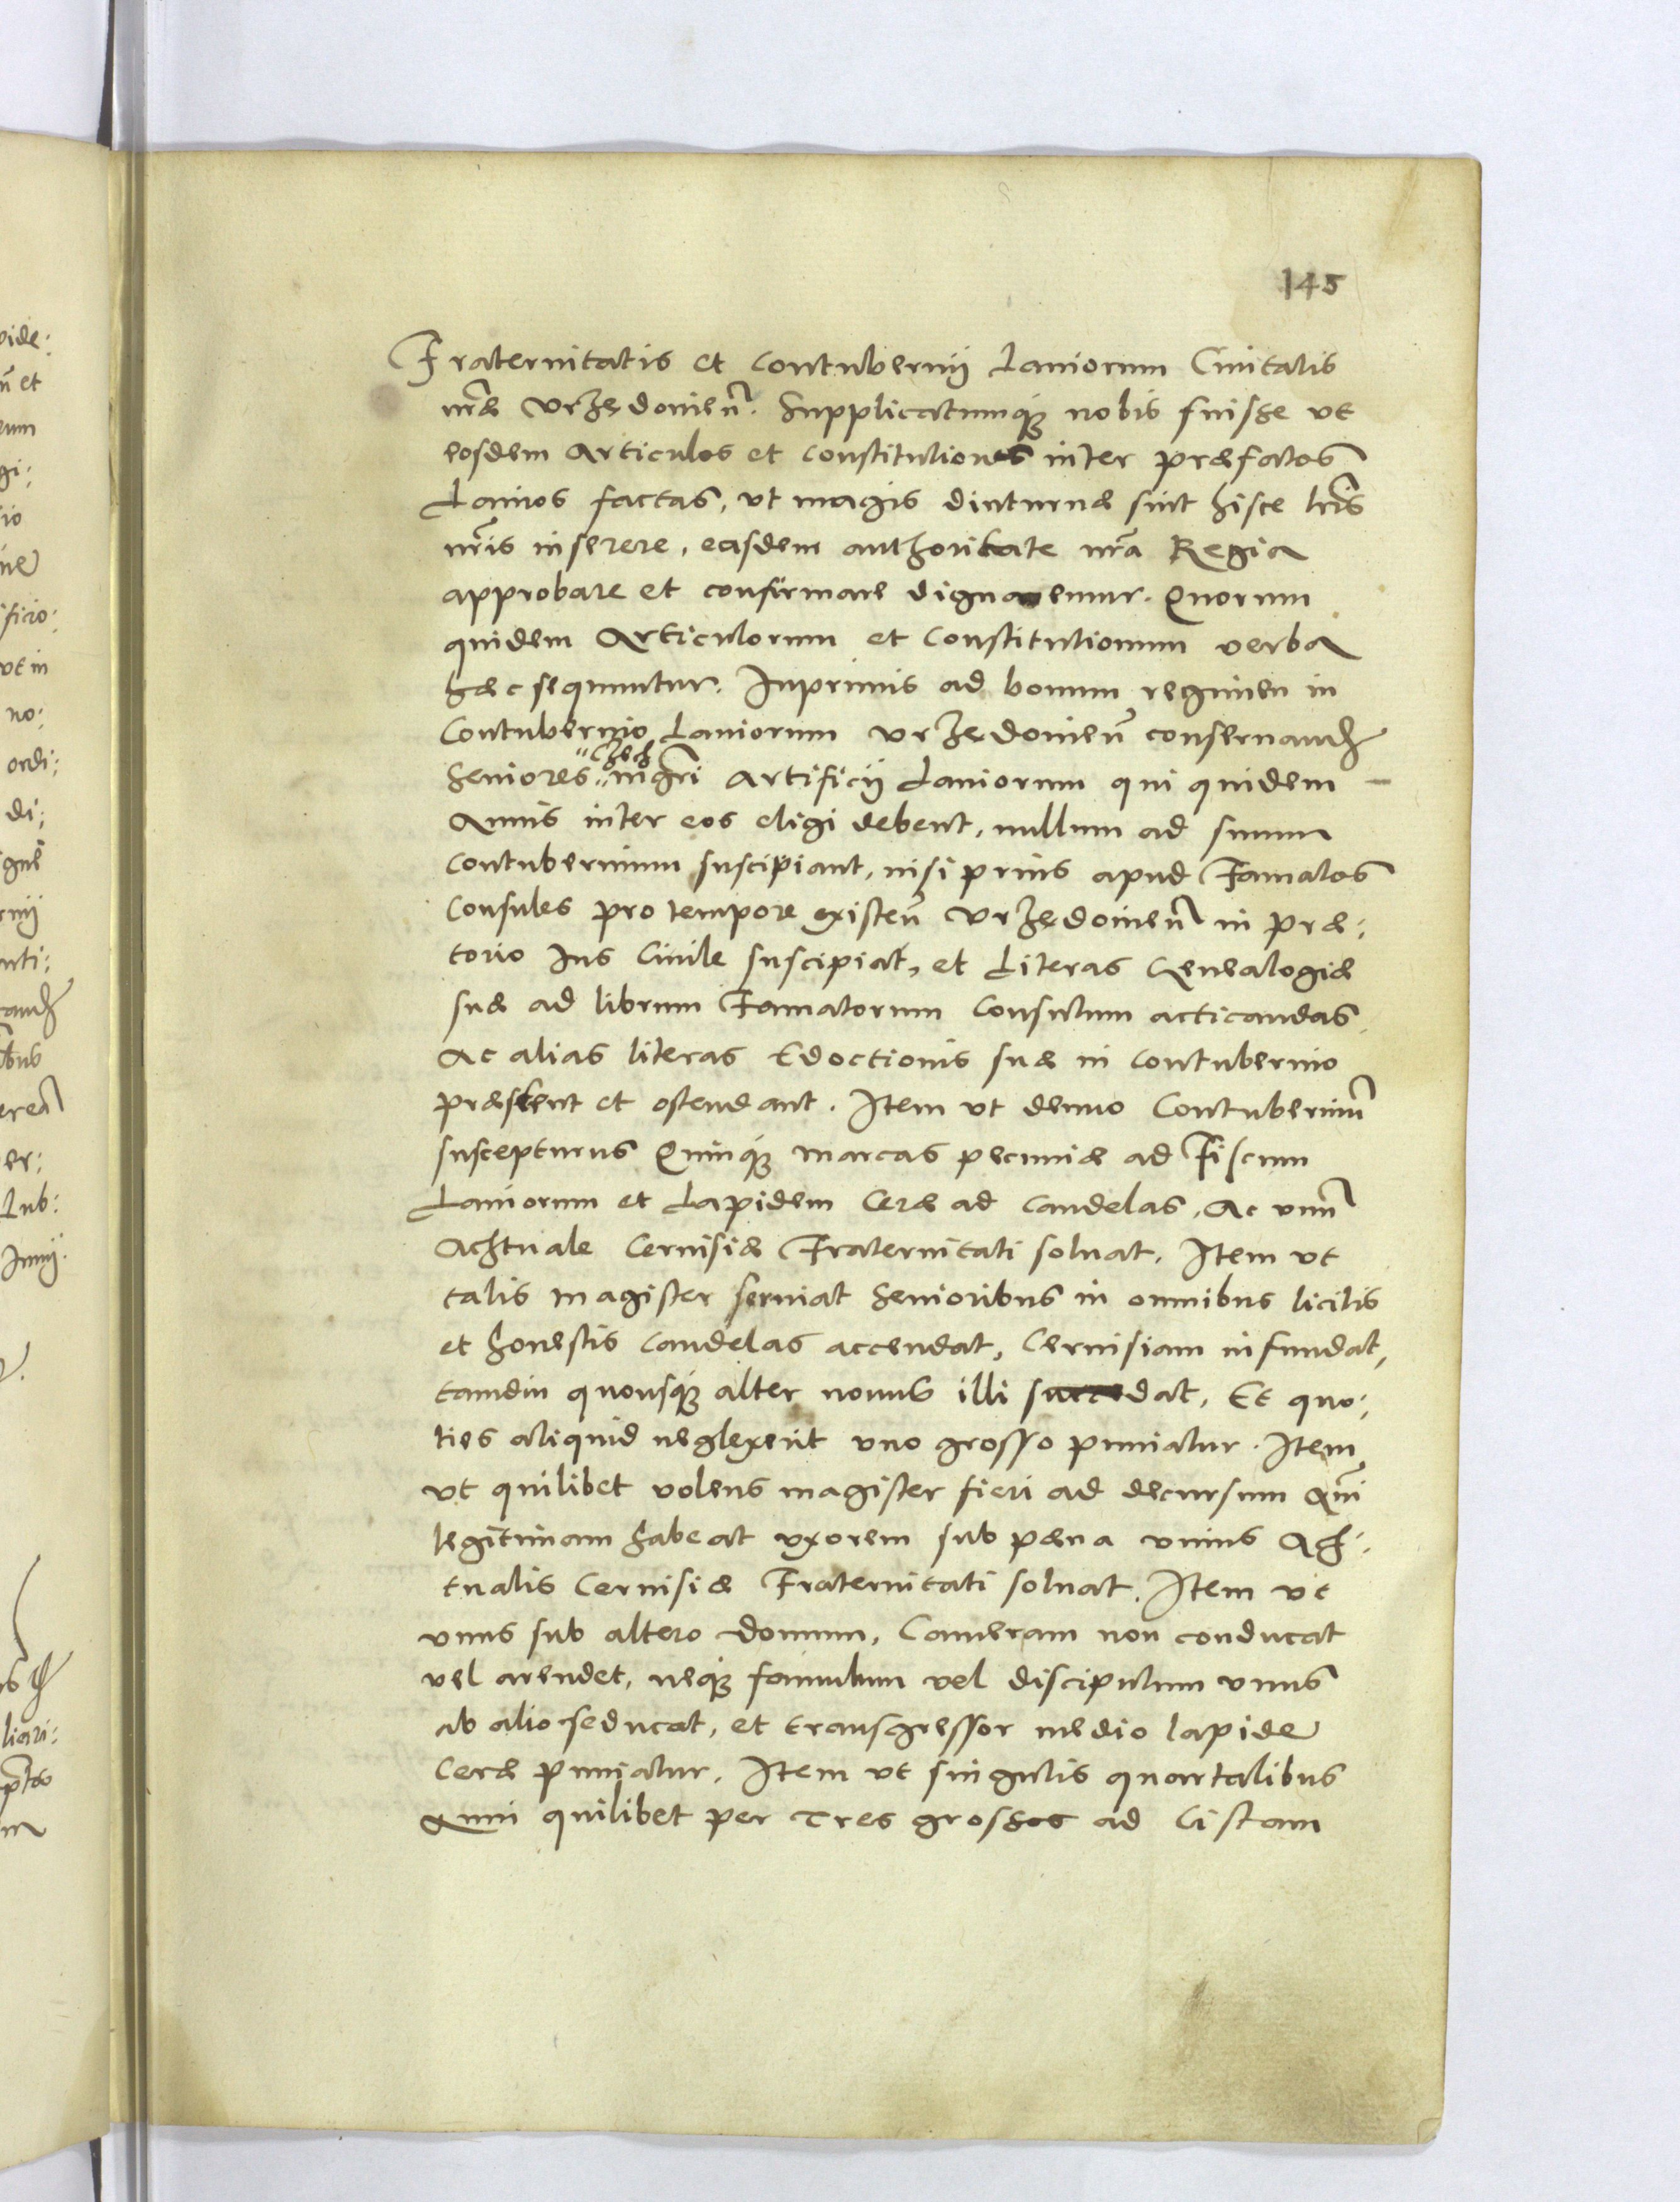 145
Fraternitatis et Contubernij Laniorum Ciuitatis
nr̃æ Vrzędouieñ. Supplicatumq́ꝫ nobis fuisse vt
eosdem Articulos et Constitutiones inter præfatos
Lanios factas, vt magis diuturnæ sint hisce lr̃is
nr̃is inserere, easdem authoritate nr̃a Regia
approbare et confirmare dignaremur. Quorum
quidem Articulorum et Constitutionum verba
hæc sequuntur. Inprimis ad bonum regimen in
Contubernio Laniorum Vrzędouieñ conseruand
Czech
Seniores mgr̃i Artificij Laniorum qui quidem
Annis inter eos eligi debent, nullum ad suum
Contubernium suscipiant, nisi prius apud Famatos
Consules pro tempore existeñ Vrzędouieñ in præ:
torio Ius Ciuile suscipiat, et Literas Genealogiæ
suæ ad librum Famatorum Consulum acticandas
Ac alias literas Edoctionis suæ in Contubernio
præstent et ostendant. Item vt denuo Contuberniũ
suscepturus Quinq́ꝫ marcas pecuniæ ad Fiscum
Laniorum et Lapidem Ceræ ad Candelas, Ac vnũ
Achtuale Ceruisiæ Fraternitati soluat. Item vt
talis magister seruiat Senioribus in omnibus licitis
et honestis Candelas accendat, Ceruisiam infundat,
tamdiu quousq́ꝫ alter nouus illi succedat, Et quo:
ties aliquid neglexerit vno grosso puniatur. Item
vt quilibet volens magister fieri ad decursum Añi
legitimam habeat vxorem sub pæna vnius Ach:
tualis Ceruisiæ Fraternitati soluat. Item vt
vnus sub altero Domum, Cameram non conducat
vel arendet, neq́ꝫ famulum vel discipulum vnus
ab alio seducat, et transgressor medio lapide
Ceræ puniatur. Item vt singulis quartalibus
Anni quilibet per Tres grossos ad Cistam